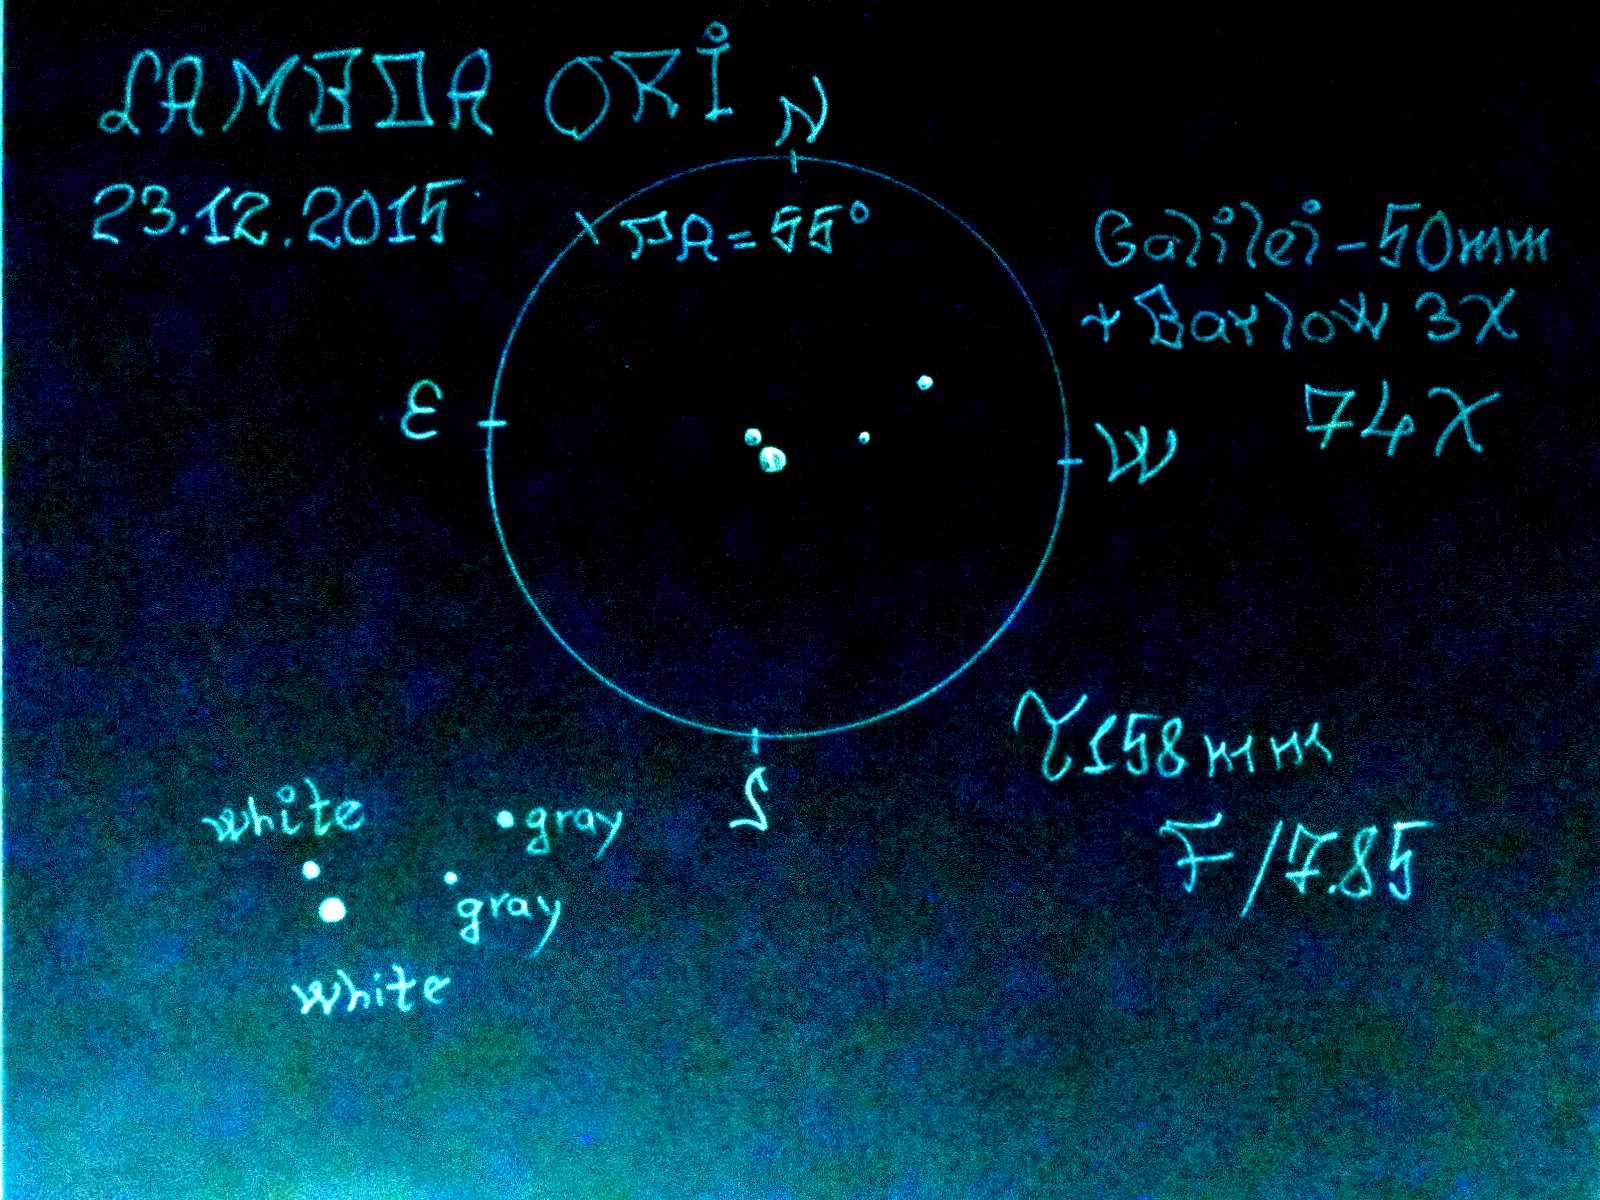 LAMBDA ORI
23.12.2015
N
PA=55°
E
W
S
Galilei-50mm
+Barlow 3X
74X
158mm
F/7.85
white
gray
gray
white